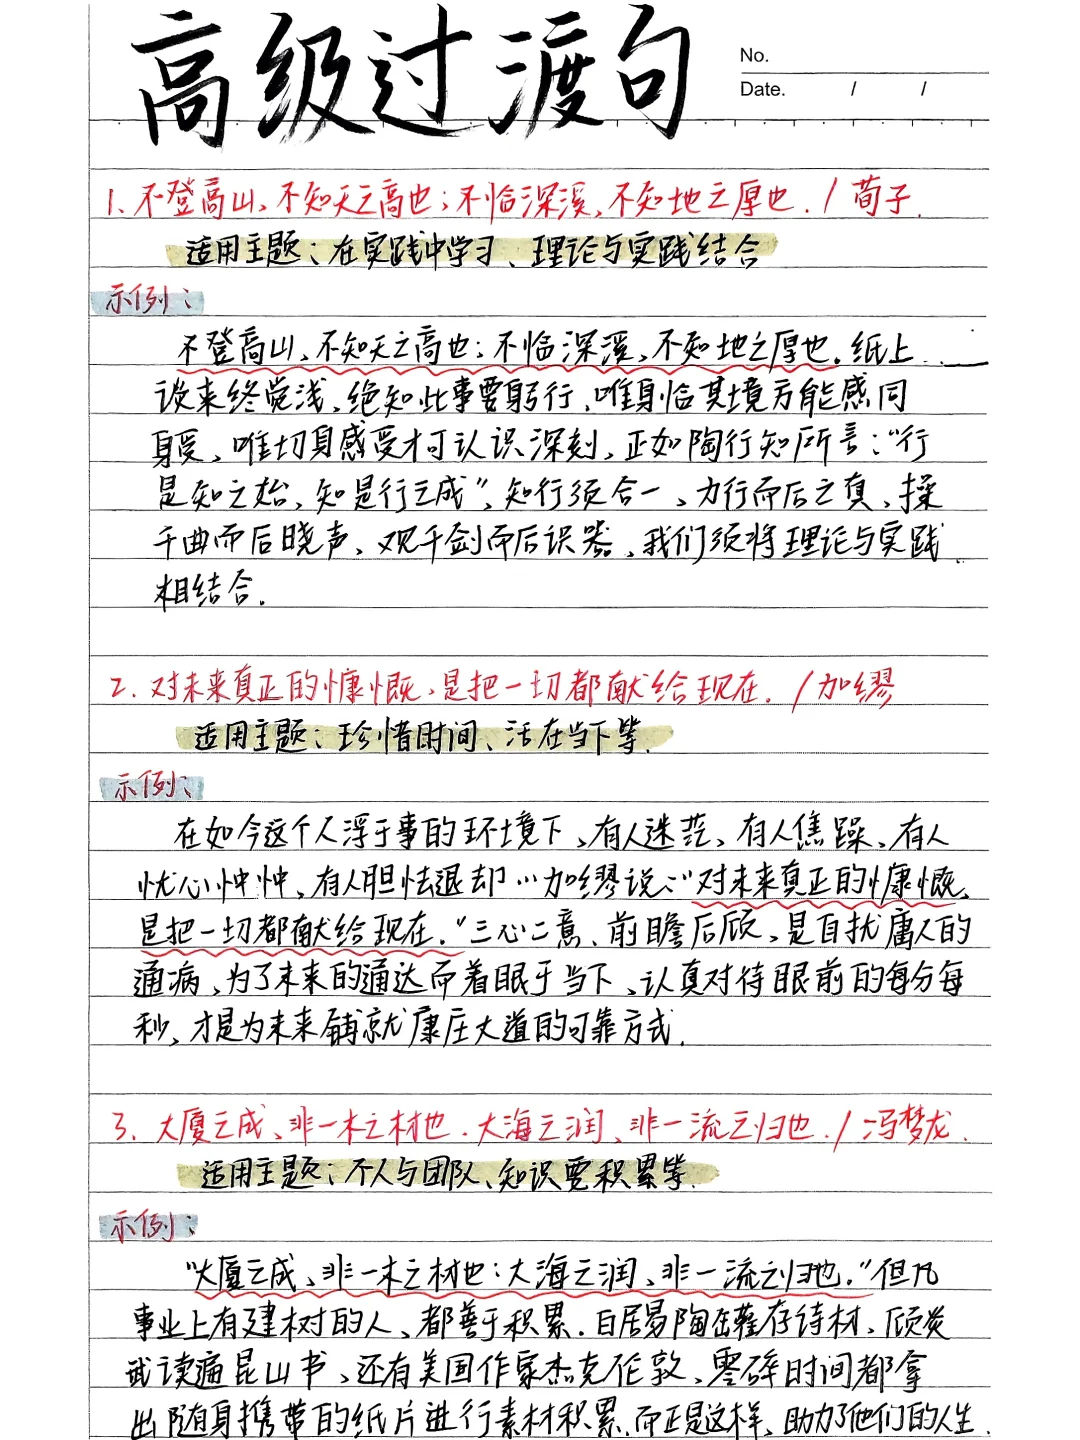 高级过渡句
No.
Date. / /
1. 不登高山、不知天之高也；不临深溪、不知地之厚也. / 荀子.
适用主题：在实践中学习、理论与实践结合
示例：
不登高山、不知天之高也；不临深溪、不知地之厚也. 纸上
谈来终觉浅、绝知此事要躬行、唯身临其境方能感同
身受、唯切身感受才可认识深刻、正如陶行知所言："行
是知之始、知是行之成"、知行须合一、力行而后之真、操
千曲而后晓声、观千剑而后识器、我们须将理论与实践
相结合.
2. 对未来真正的慷慨、是把一切都献给现在. / 加缪
适用主题：珍惜时间、活在当下等.
示例：
在如今这个人浮于事的环境下、有人迷茫、有人焦躁、有人
忧心忡忡、有人胆怯退却…加缪说："对未来真正的慷慨、
是把一切都献给现在."三心二意、前瞻后顾、是自扰庸人的
通病、为了未来的通达而着眼于当下、认真对待眼前的每分每
秒、才是为未来铺就康庄大道的可靠方式.
3. 大厦之成、非一木之材也. 大海之润、非一流之归也. / 冯梦龙.
适用主题：个人与团队、知识要积累等.
示例：
"大厦之成、非一木之材也：大海之润、非一流之归也."但凡
事业上有建树的人、都善于积累. 白居易陶罐存诗材、顾炎
武读遍昆山书、还有美国作家杰克伦敦、零碎时间都拿
出随身携带的纸片进行素材积累. 而正是这样、助力了他们的人生.